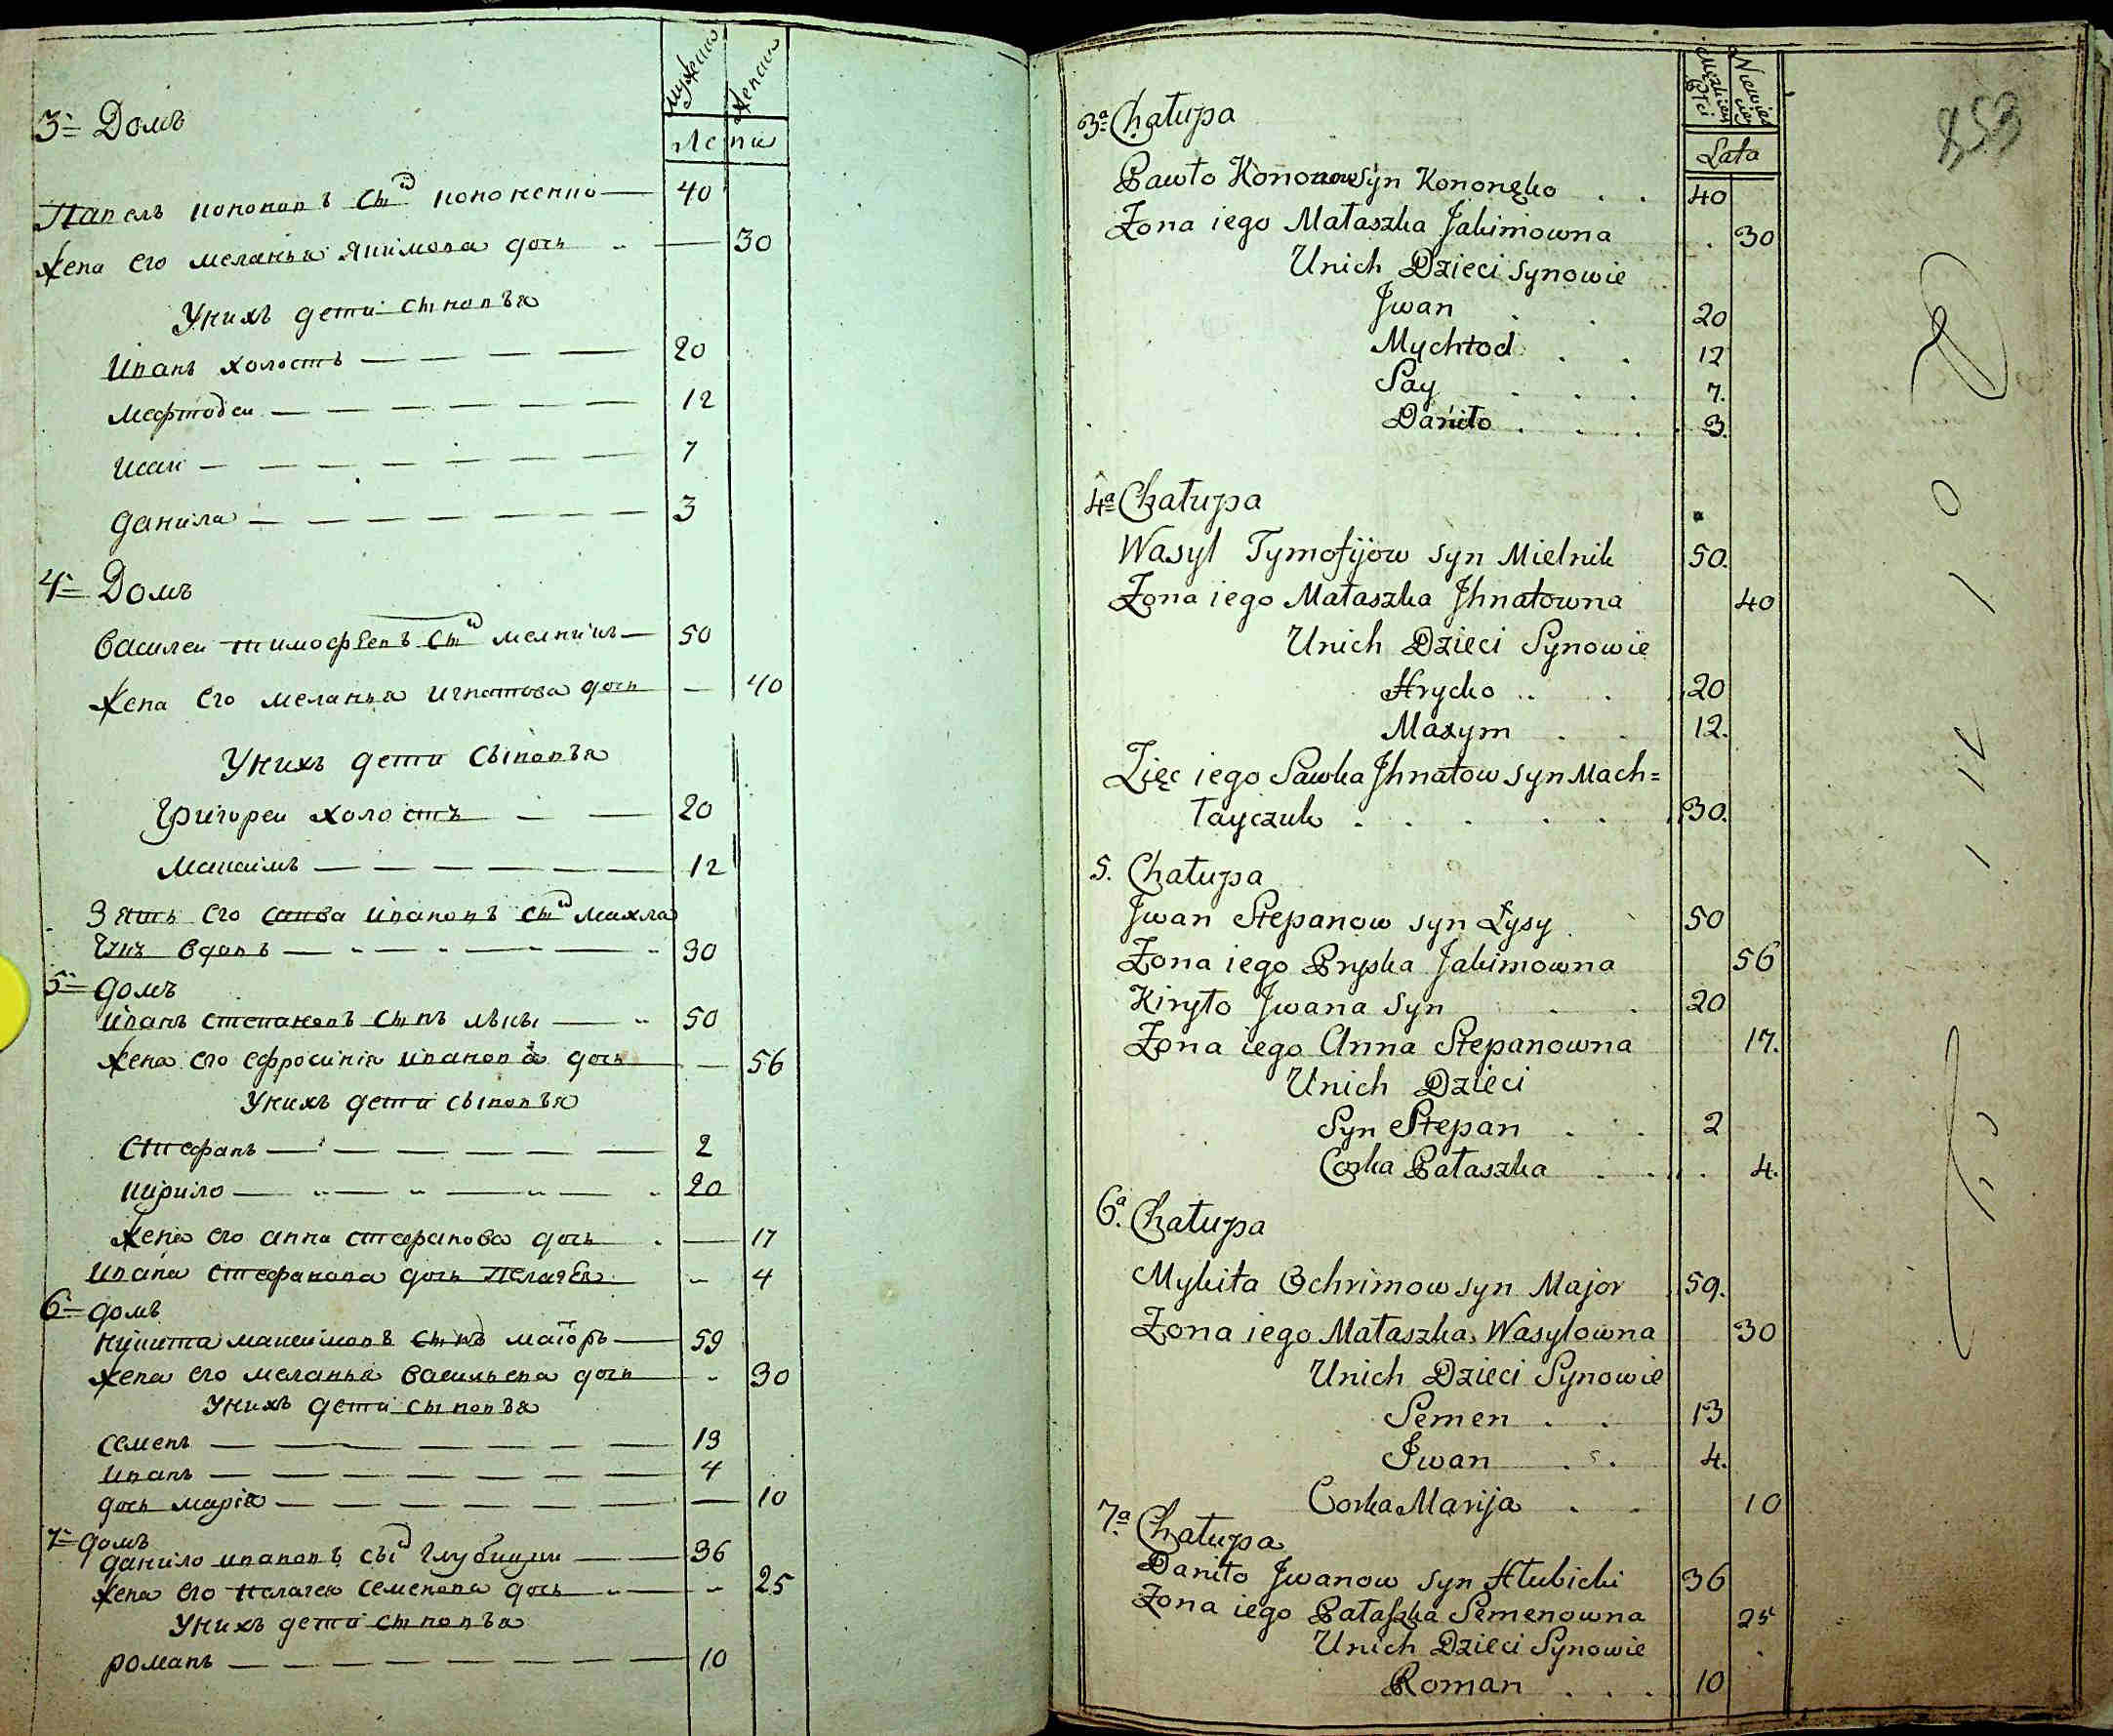 мужеска
женска
Лета
3 = Домъ
Павелъ кононовъ сынъ кононенко — 40
жена его меланья якимова дочь — 30
Унихъ дети сыновья
Иванъ холостъ — 20
мефтодеи — 12
исаи — 7
данила — 3
4 = Домъ
василеи тимофеевъ сынъ мелникъ — 50
жена его меланья игнатова дочь — 40
Унихъ дети сыновья
григореи холостъ — 20
максимъ — 12
Зять его савва ивановъ сынъ махла
чукъ вдовъ — 30
5 = домъ
иванъ степановъ сынъ лысы — 50
жена его ефросинія иванова дочь — 56
Унихъ дети сыновья
Стефанъ — 2
кирило — 20
жена его анна стефанова дочь — 17
ивана стефанова дочь Пелагея — 4
6 = домъ
никита максимовъ сынъ маіоръ — 59
жена его меланья васильева дочь — 30
Унихъ дети сыновья
семенъ — 13
иванъ — 4
дочь марія — 10
7 = домъ
данило ивановъ сы глубицки — 36
жена его палагея семенова дочь — 25
Унихъ дети сыновья
романъ — 10
Męzkiey Płci
Niewias
Lata
853
3ª Chałupa
Pawło Kononow Syn Kononęko . . 40
Zona iego Małaszka Jakimowna . 30
Unich Dzieci Synowie
Jwan . . 20
Mychtod . . 12
Say . . . 7.
Daniło . . . . 3.
4ª Chałupa
Wasyl Tymofijow Syn Mielnik 50.
Zona iego Małaszka Jhnatowna 40
Unich Dzieci Synowie
Hrycko . . . 20
Maxym . . 12.
Zięc iego Sawka Jhnatow Syn Mach=
łayczuk . . . . . 30.
5. Chałupa
Jwan Stepanow Syn Łysy . 50
Zona iego Pryska Jakimowna 56
Kiryło Jwana Syn . . 20
Zona iego Anna Stepanowna 17.
Unich Dzieci
Syn Stepan . . 2
Corka Pałaszka . . . . 4.
6ª Chałupa
Mykita Ochrimow Syn Major 59.
Zona iego Małaszka Wasylowna 30
Unich Dzieci Synowie
Semen . . 13
Jwan . . . 4.
Corka Marija . . 10
7ª Chałupa
Daniło Jwanow Syn Hłubicki 36
Zona iego Pałaszka Semenowna 25
Unich Dzieci Synowie
Roman . . . 10